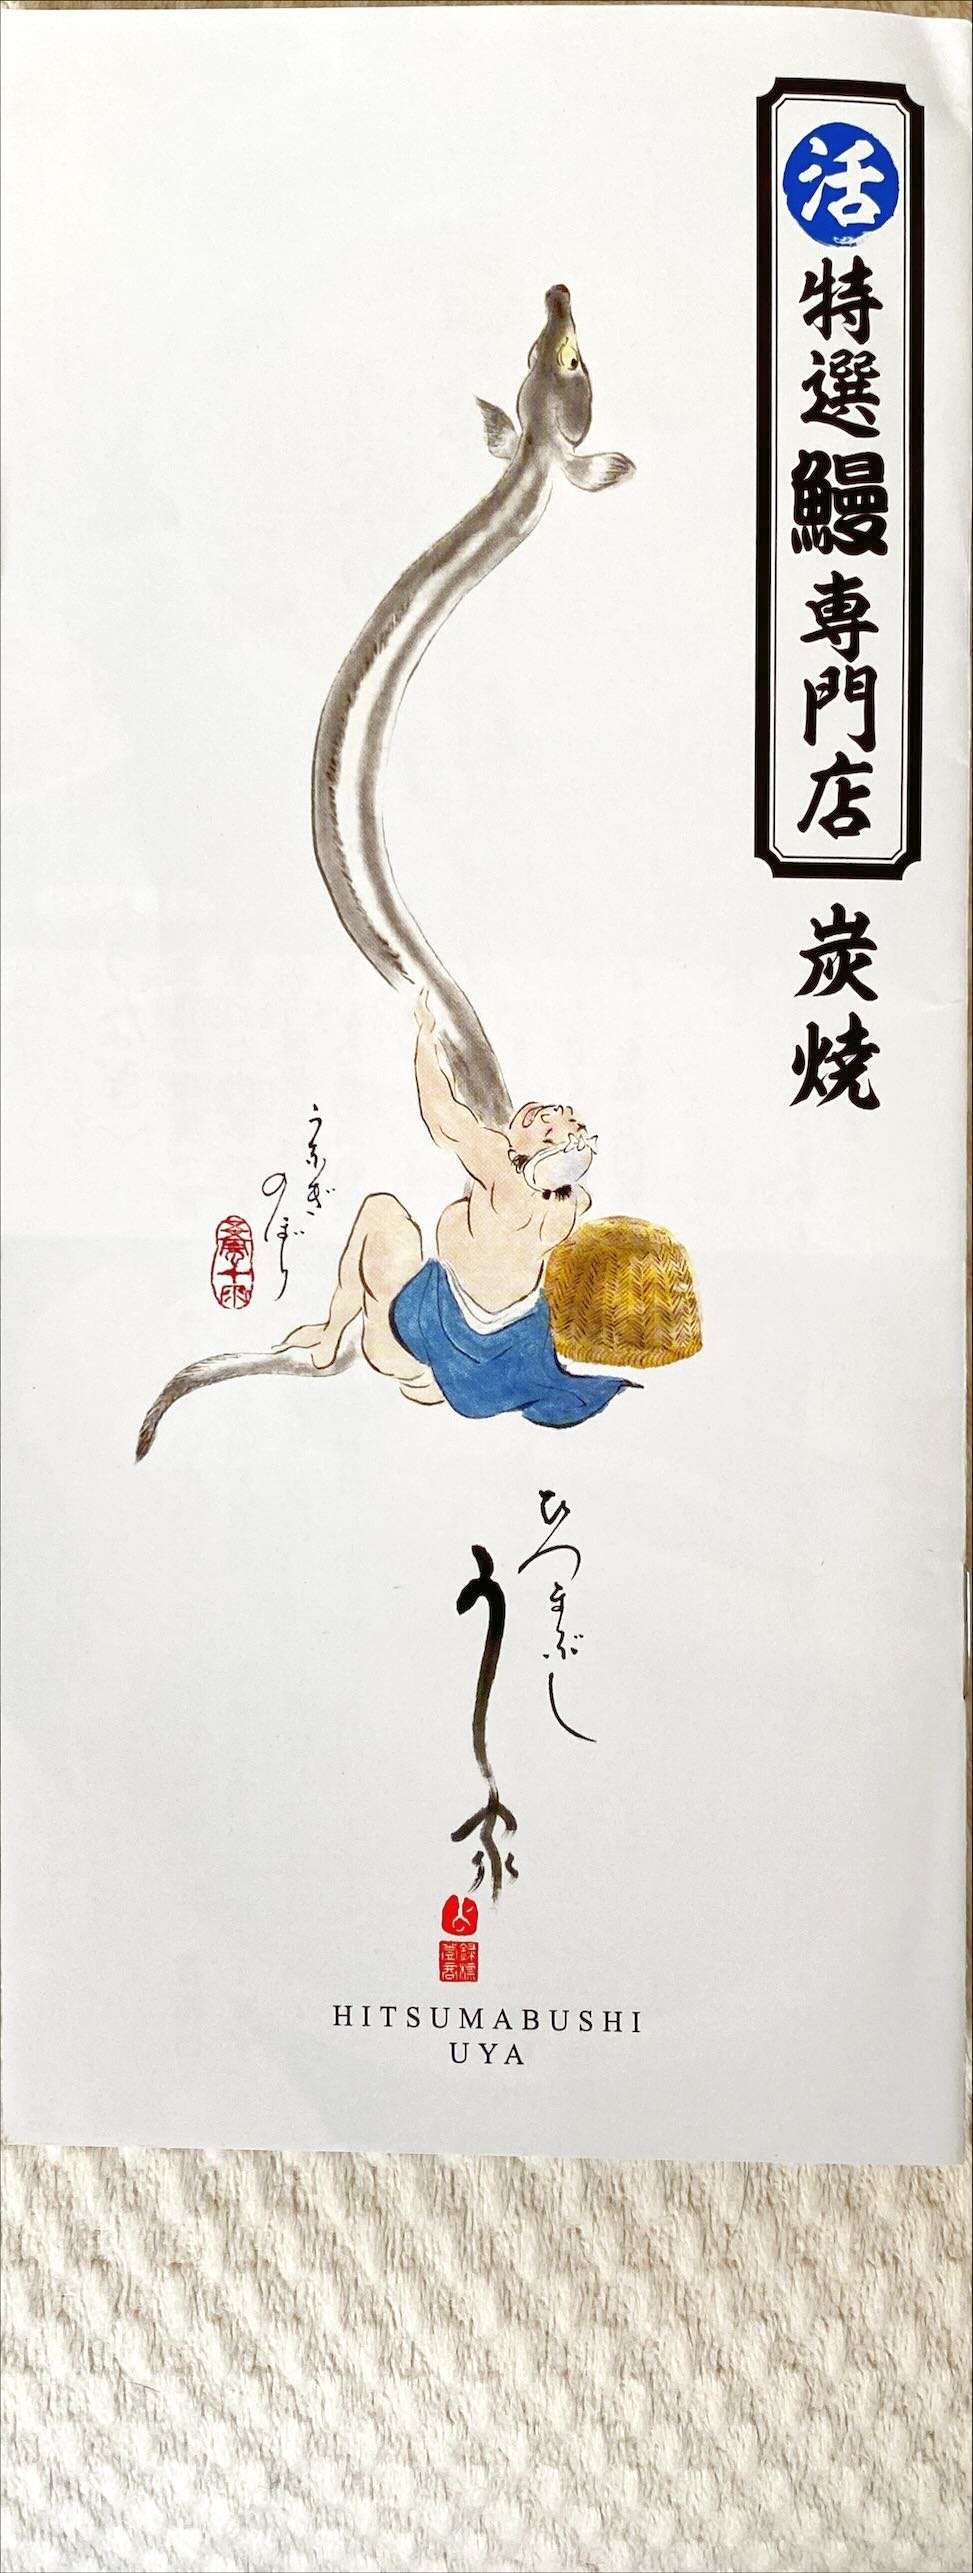 活 特選鰻専門店 炭焼
うなぎ
のぼり
ひつまぶし
う家
HITSUMABUSHI
UYA